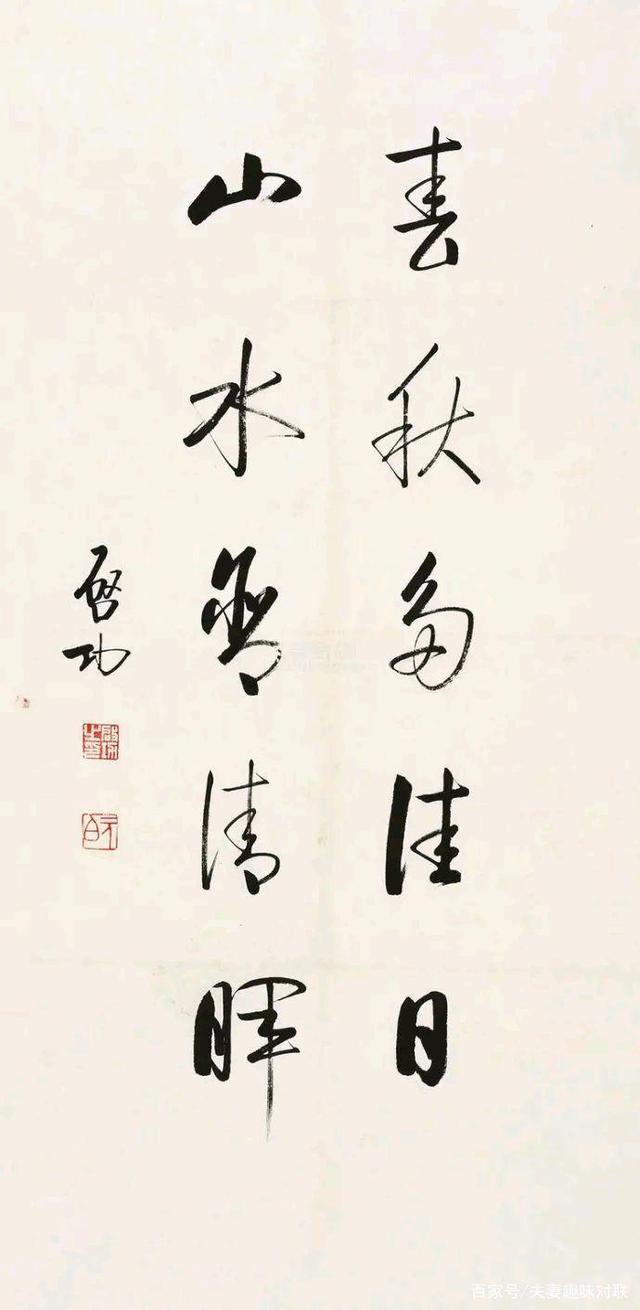 春秋多佳日
山水留清晖
启功
百家号/夫妻趣味对联